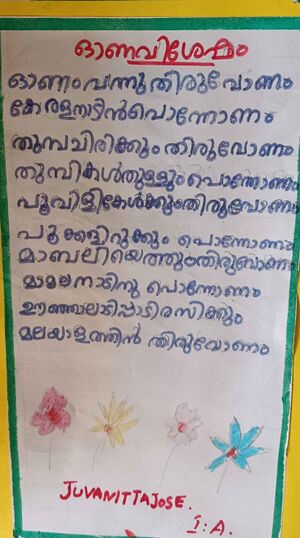 ഓണവിശേഷം
ഓണം വന്നു തിരുവോണം
കേരളനാട്ടിൻപൊന്നോണം
തുമ്പചിരിക്കും തിരുവോണം
തുമ്പികൾതുള്ളും പൊന്നോണം
പൂവിളികേൾക്കുംതിരുവോണം
പൂക്കളിറുക്കും പൊന്നോണം
മാബലിയെത്തുംതിരുവോണം
മാമലനാടിനു പൊന്നോണം
ഊഞ്ഞലാടിപ്പാടിരസിക്കും
മലയാളത്തിൻ തിരുവോണം
JUVANITTAJOSE.
I:A.